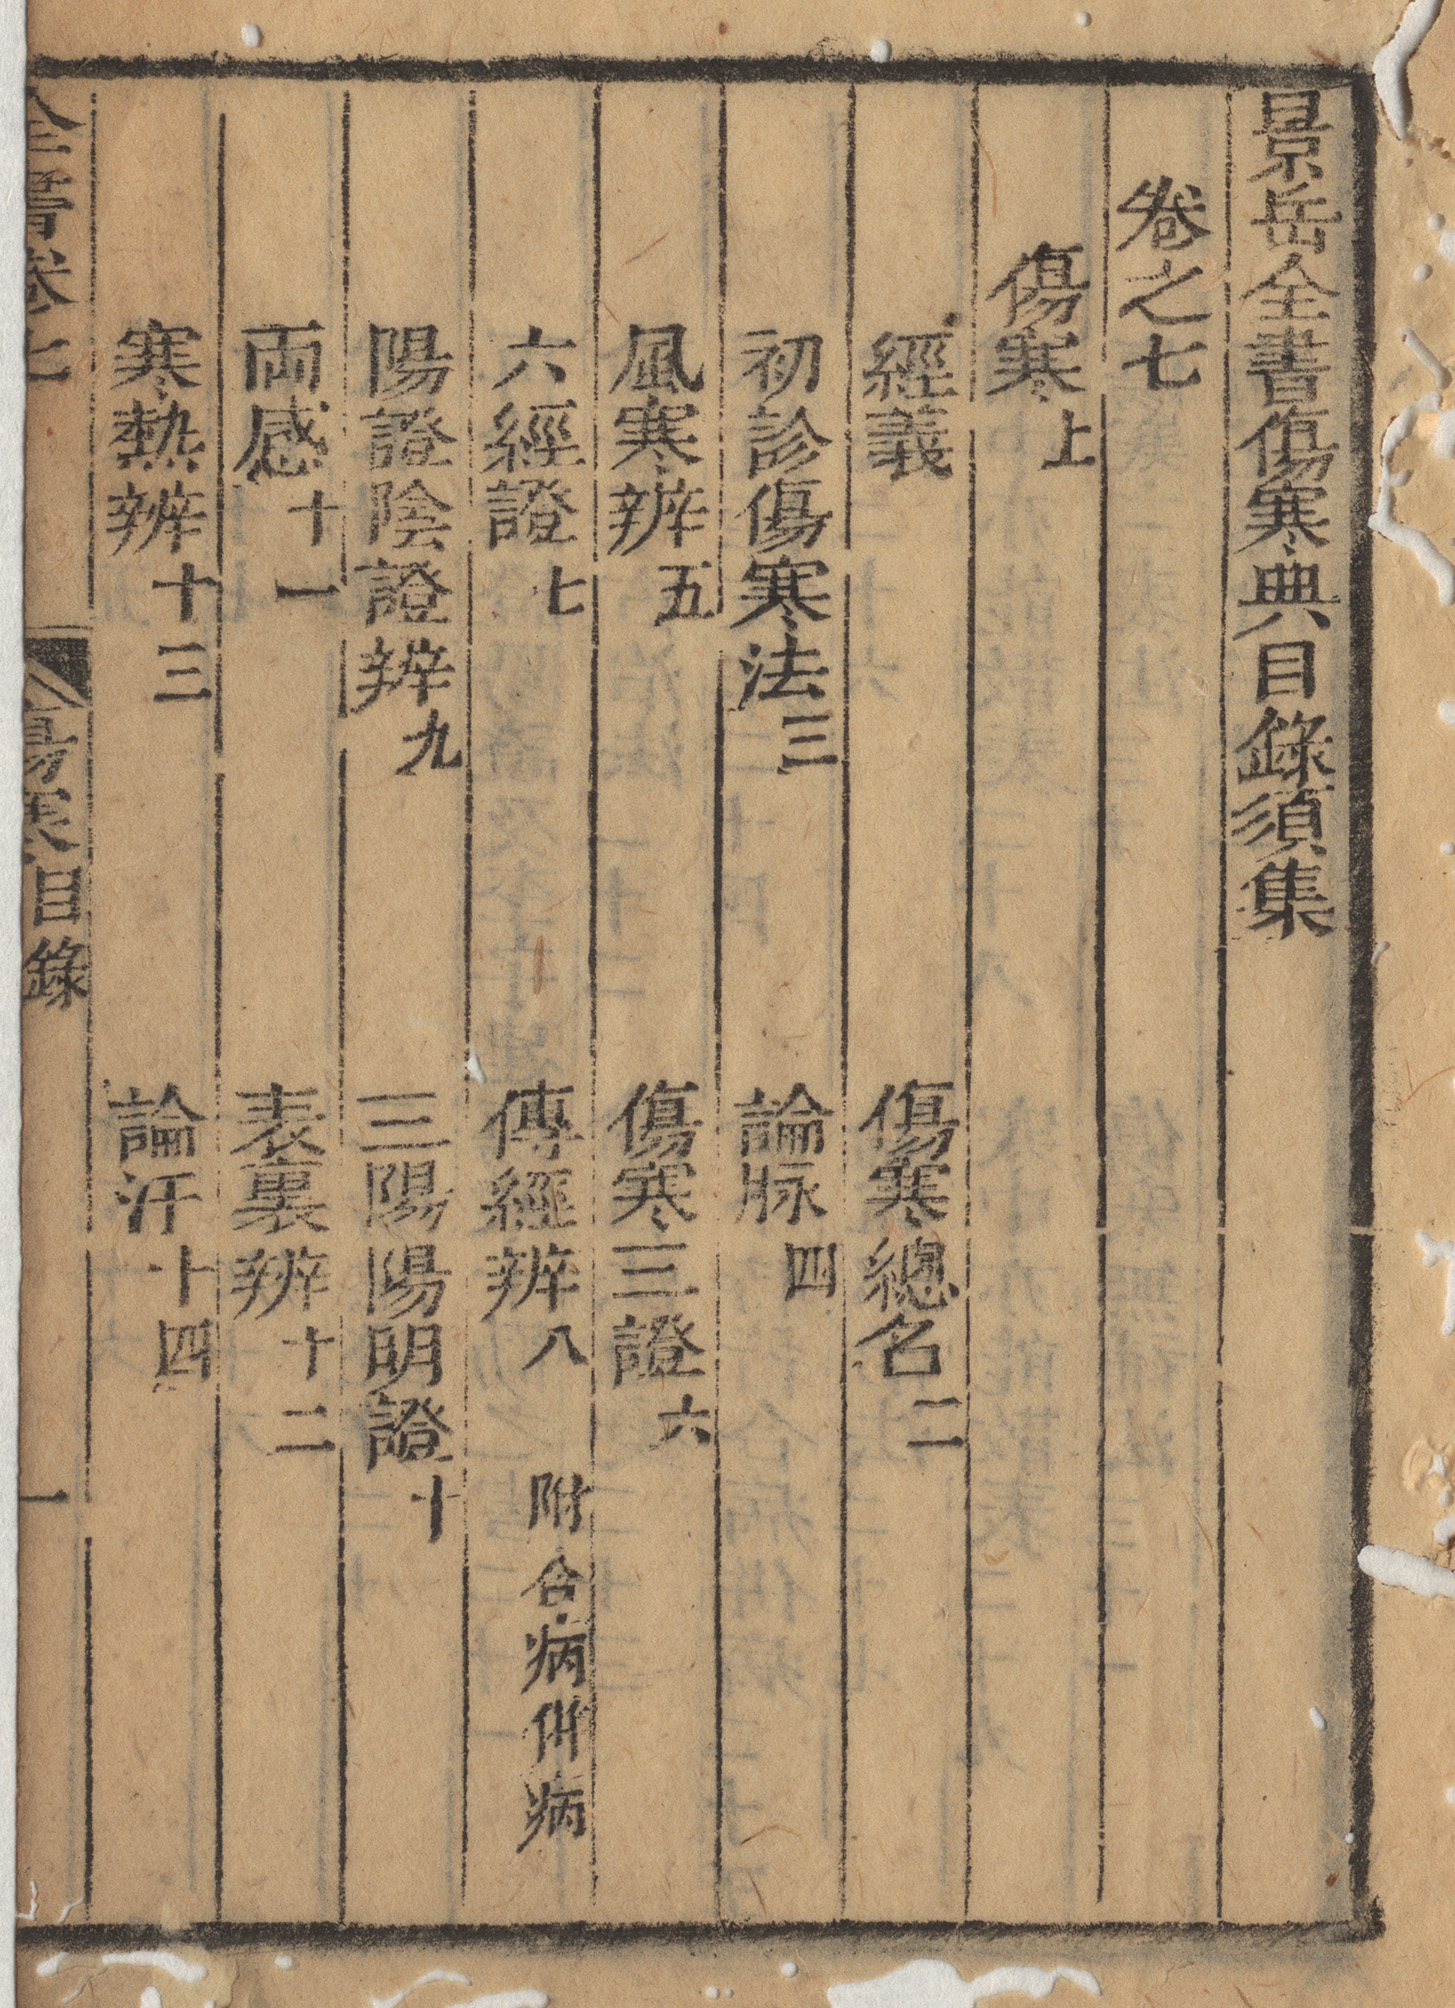 景岳全書傷寒典目錄須集
卷之七
傷寒上
經義
傷寒總名二
初診傷寒法三
論脉四
風寒辨五
傷寒三證六
六經證七
傳經辨八 附合病併病
陽證陰證辨九
三陽陽明證十
両感十一
表裏辨十二
寒熱辨十三
論汗十四
全書卷七 傷寒目錄 一